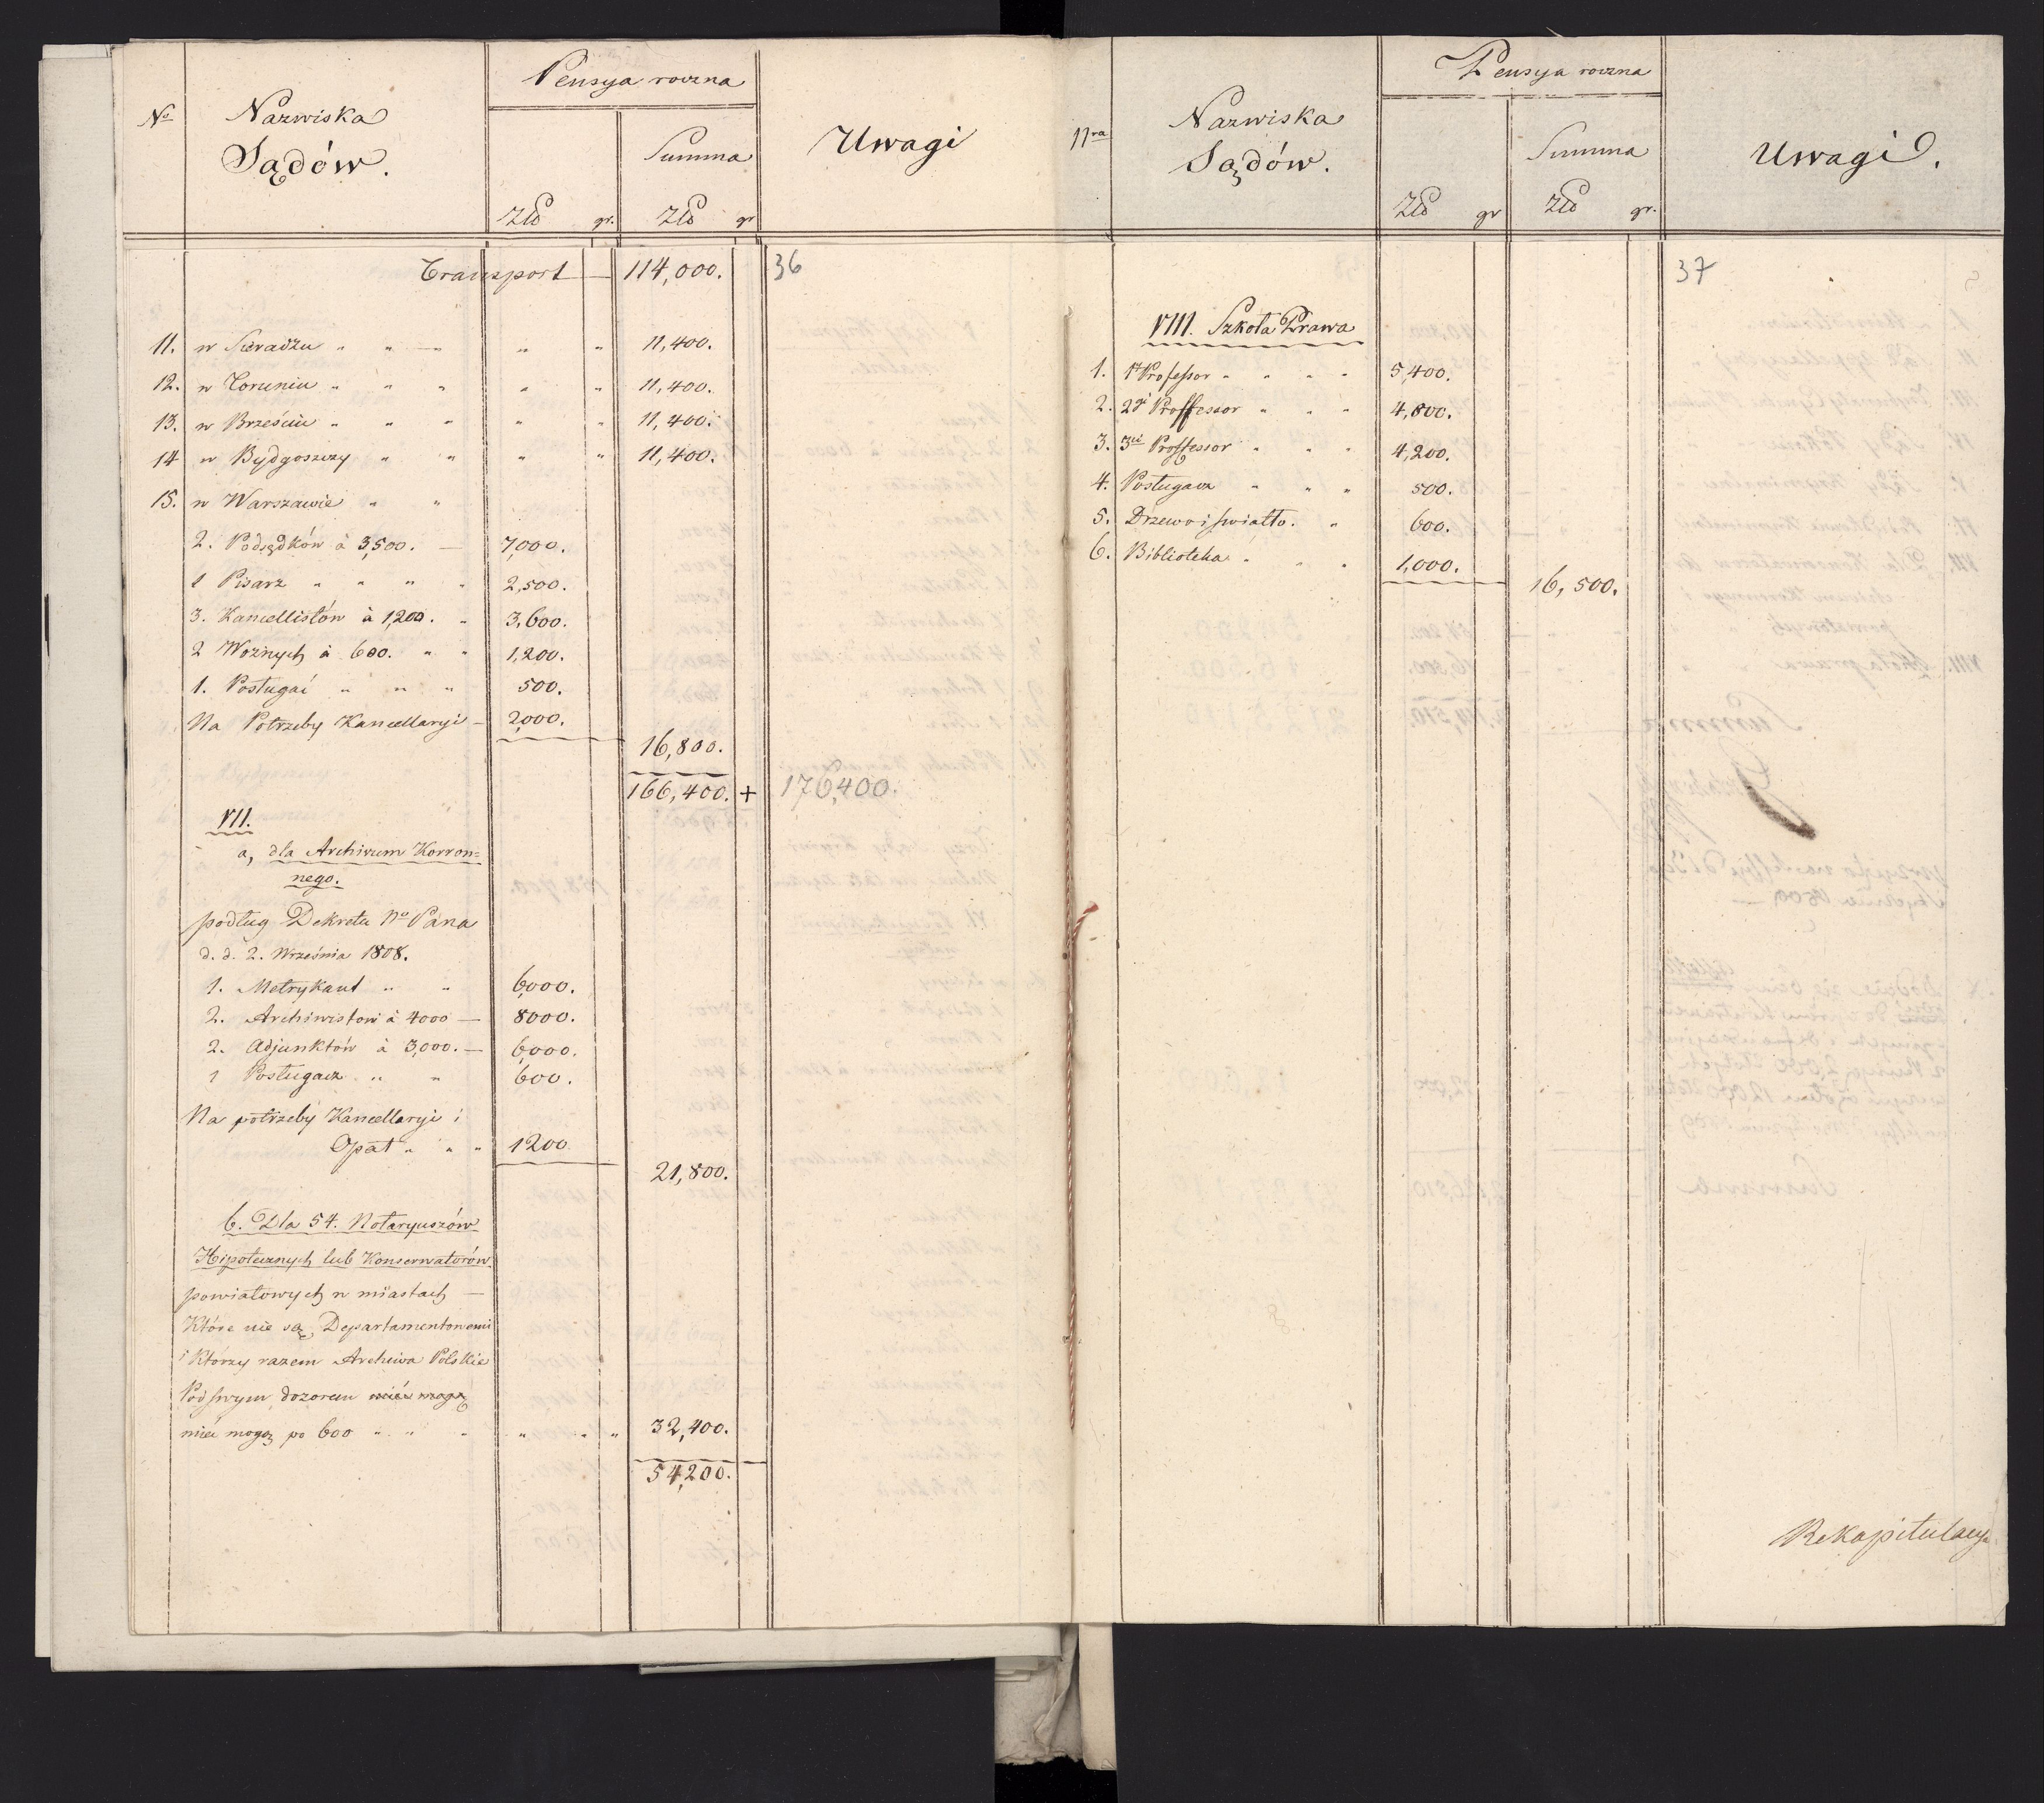 Pensya roczna
No Nazwiska Sądów. Summa Uwagi
Złp gr. Złp gr
Transport — 114,000. 36
11. w Sieradzu " " — " " 11,400.
12. w Toruniu " " " " " 11,400.
13. w Brześciu " " " " " 11,400.
14 w Bydgoszczy " " " " 11,400.
15. w Warszawie " "
2. Podsędków à 3,500. — 7,000.
1 Pisarz " " " " 2,500.
3. Kancellistów à 1,200. " 3,600.
2 Woźnych à 600. " " 1,200.
1. Posługać " " " 500.
Na Potrzeby Kancellaryi — 2,000.
16,800.
166,400. + 176,400.
VII.
a, dla Archiwum Korron=
nego.
podług Dekretu No Pana
d. d. 2. Września 1808.
1. Metrykant " " 6,000.
2. Archiwistow à 4000 — 8000.
2. Adjunktów à 3,000. — 6,000.
1 Posługacz " " 600.
Na potrzeby Kancellaryi i
Opał " " " 1200
21,800.
b. Dla 54. Notaryuszów
Hipotecznych lub Konserwatorów
powiatowych w miastach —
Które nie są Departamentowemi
i Którzy razem Archiwa Polskie
Pod swym dozorem mieć mogą
mieć mogą po 600 " " " " " " 32,400.
54,200.
Pensya roczna
Nra Nazwiska Sądów. Summa Uwagi.
Złp gr Złp gr.
37
VIII. Szkoła Prawa
1. 1r Professor " " " " 5,400.
2. 2gi Proffessor " " " 4,800.
3. 3ci Proffessor " " " 4,200.
4. Posługacz " " " 500.
5. Drzewo i swiatło. " 600.
6. Biblioteka " " " 1,000.
16,500.
Rekapitulacya